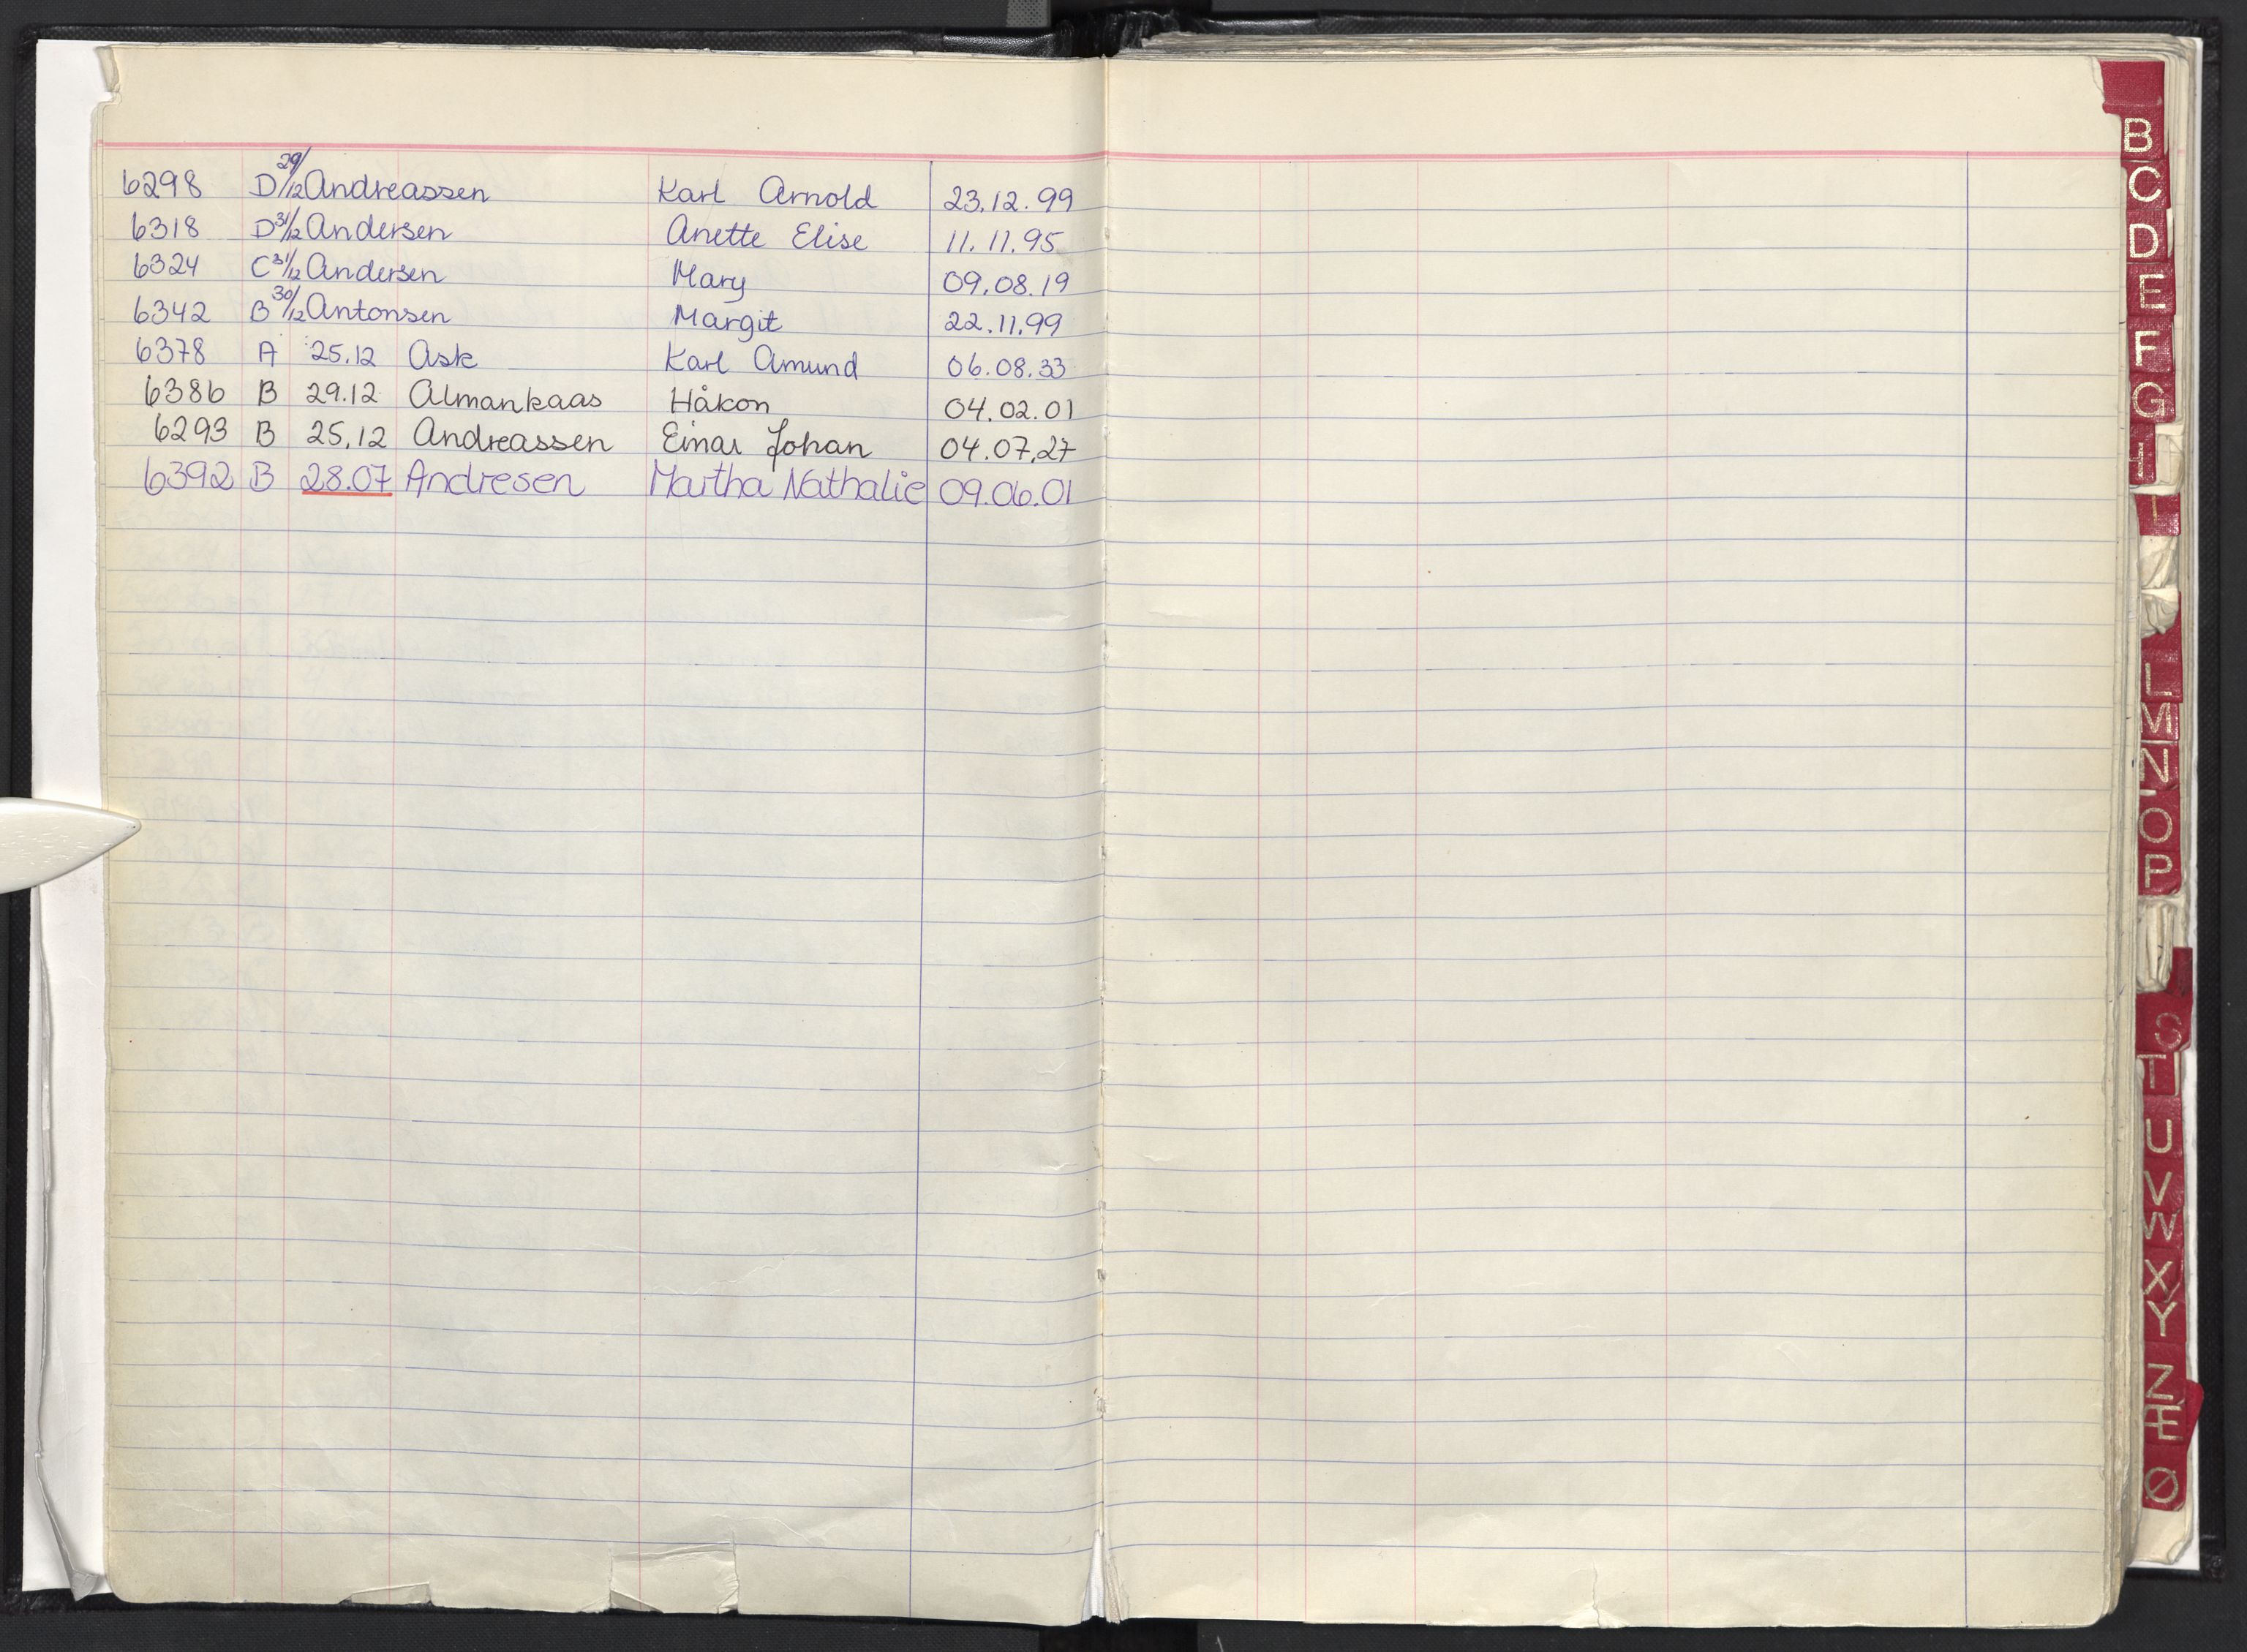 6298 D 29/12 Andreassen Karl Arnold 23.12.99
6318 D 31/12 Andersen Anette Elise 11.11.95
6324 C 31/12 Andersen Mary 09.08.19
6342 B 30/12 Antonsen Margit 22.11.99
6378 A 25.12 Ask Karl Amund 06.08.33
6386 B 29.12 Almankaas Håkon 04.02.01
6293 B 25.12 Andreassen Einar Johan 04.07.27
6392 B 28.07 Andresen Martha Nathalie 09.06.01
B
C
D
E
F
G
H
I
L
M
N
O
P
S
T
U
V
W
X
Y
Z
Æ
Ø